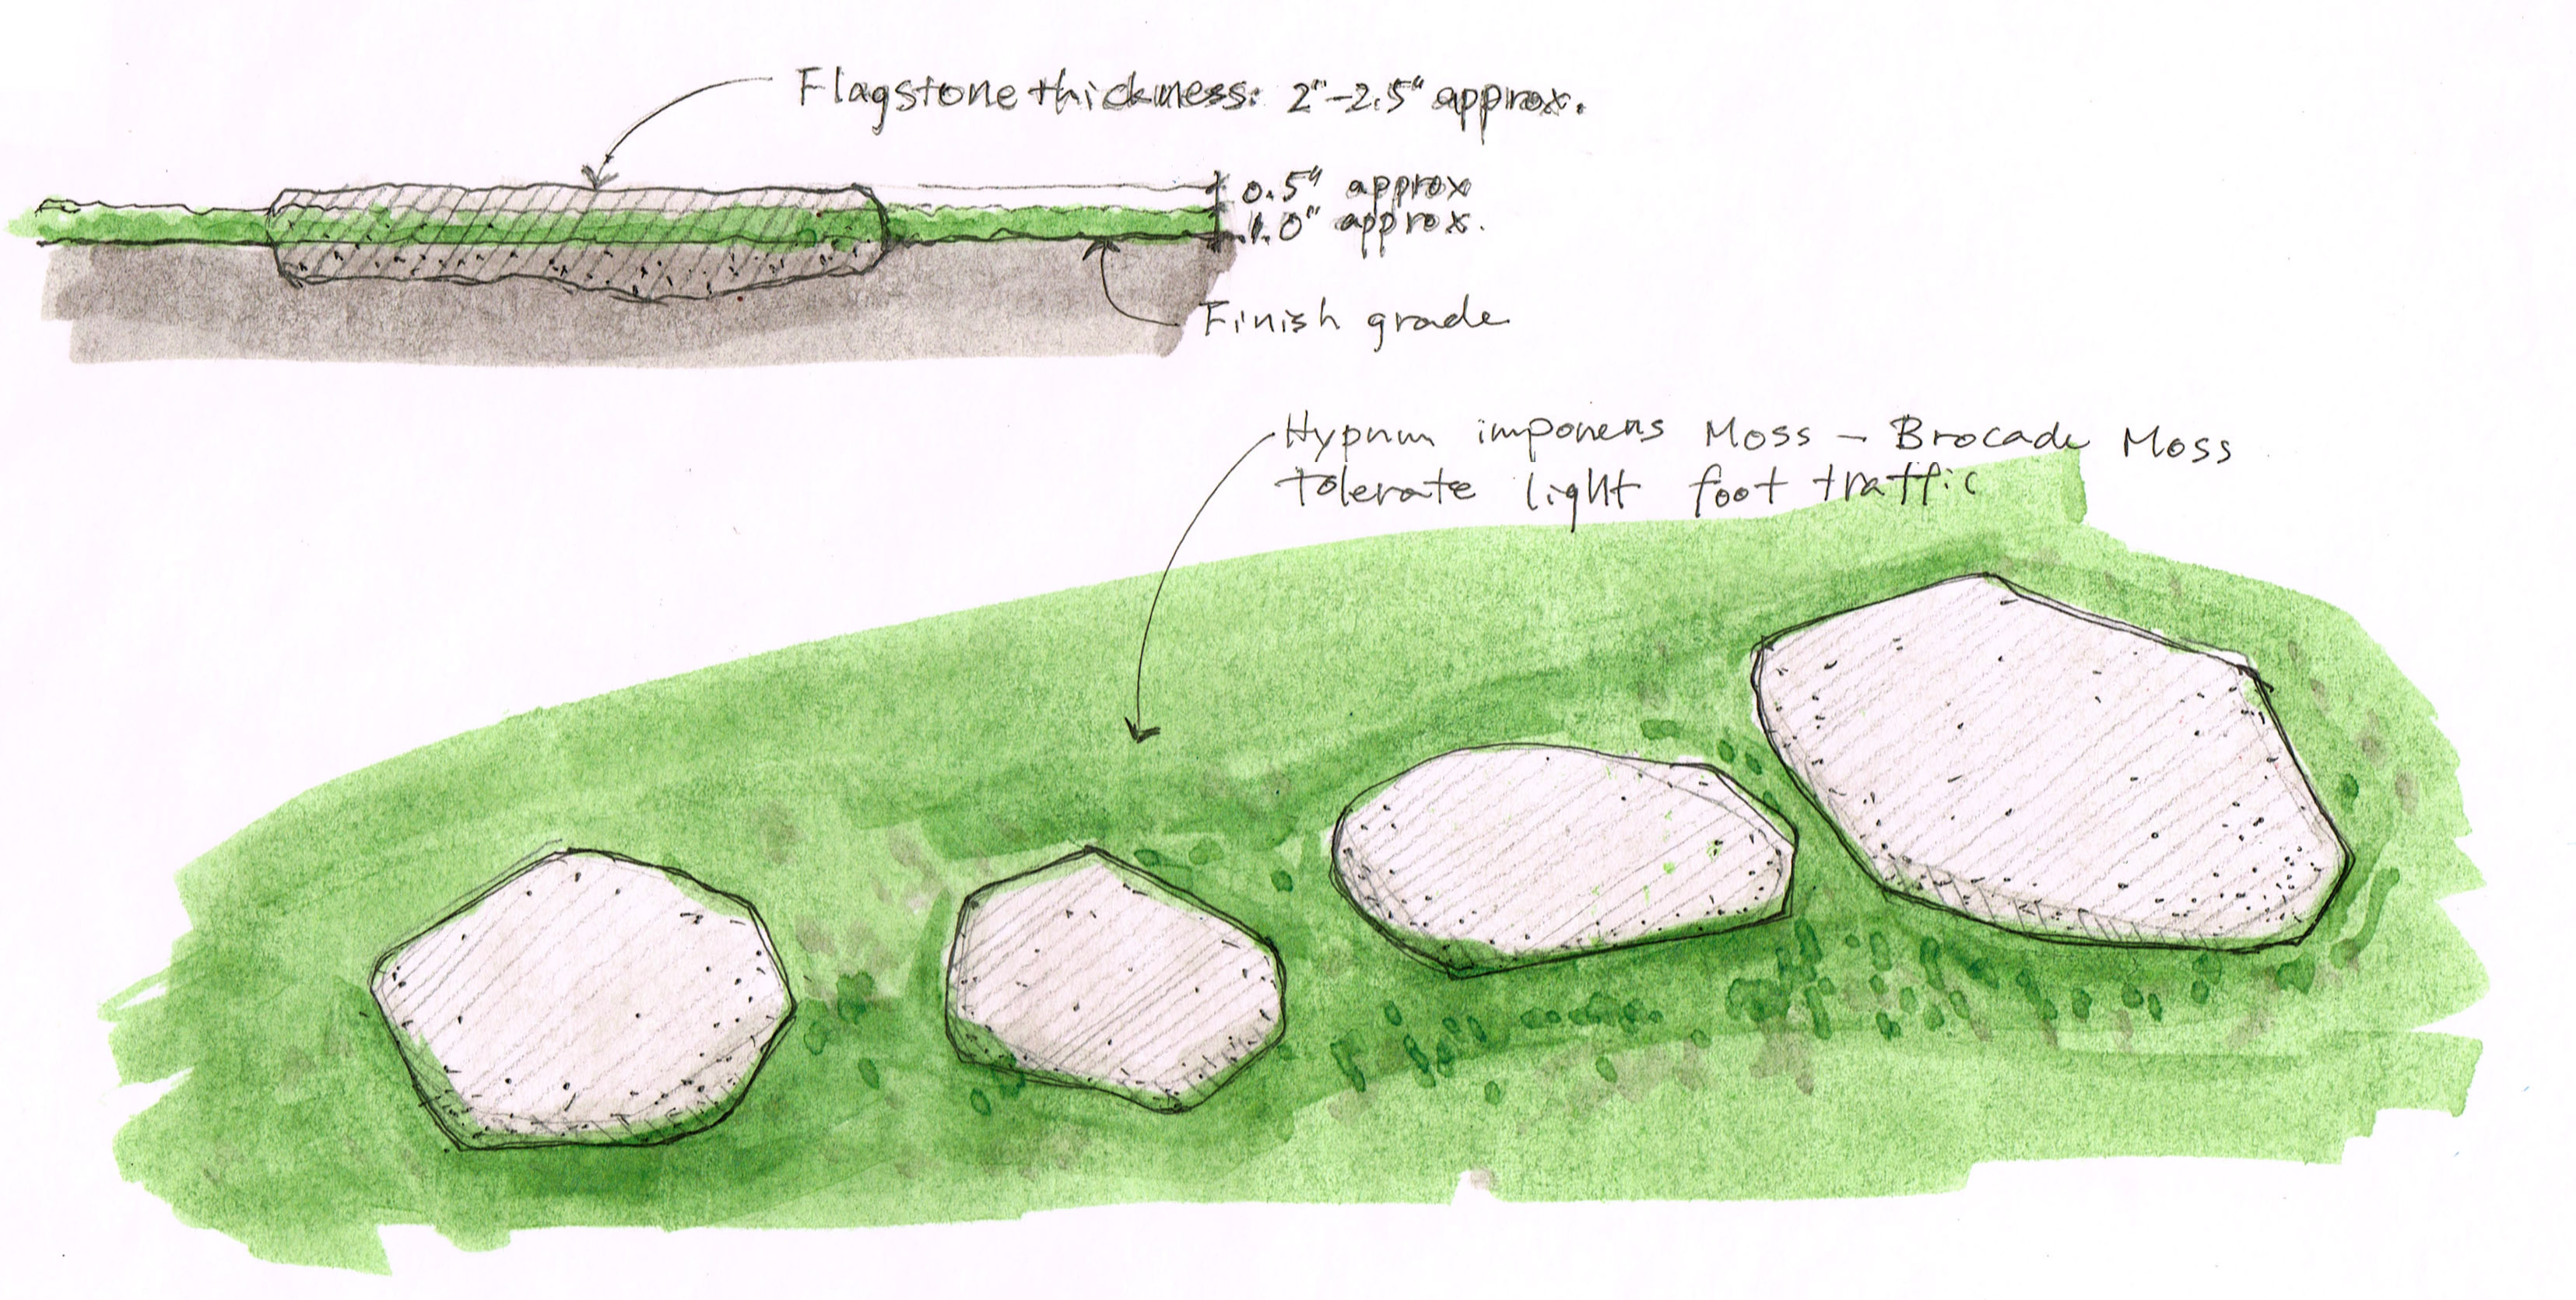 Flagstone thickness: 2"-2.5" approx.
0.5" approx
1.0" approx.
Finish grade
Hypnum imponens Moss - Brocade Moss
tolerate light foot traffic